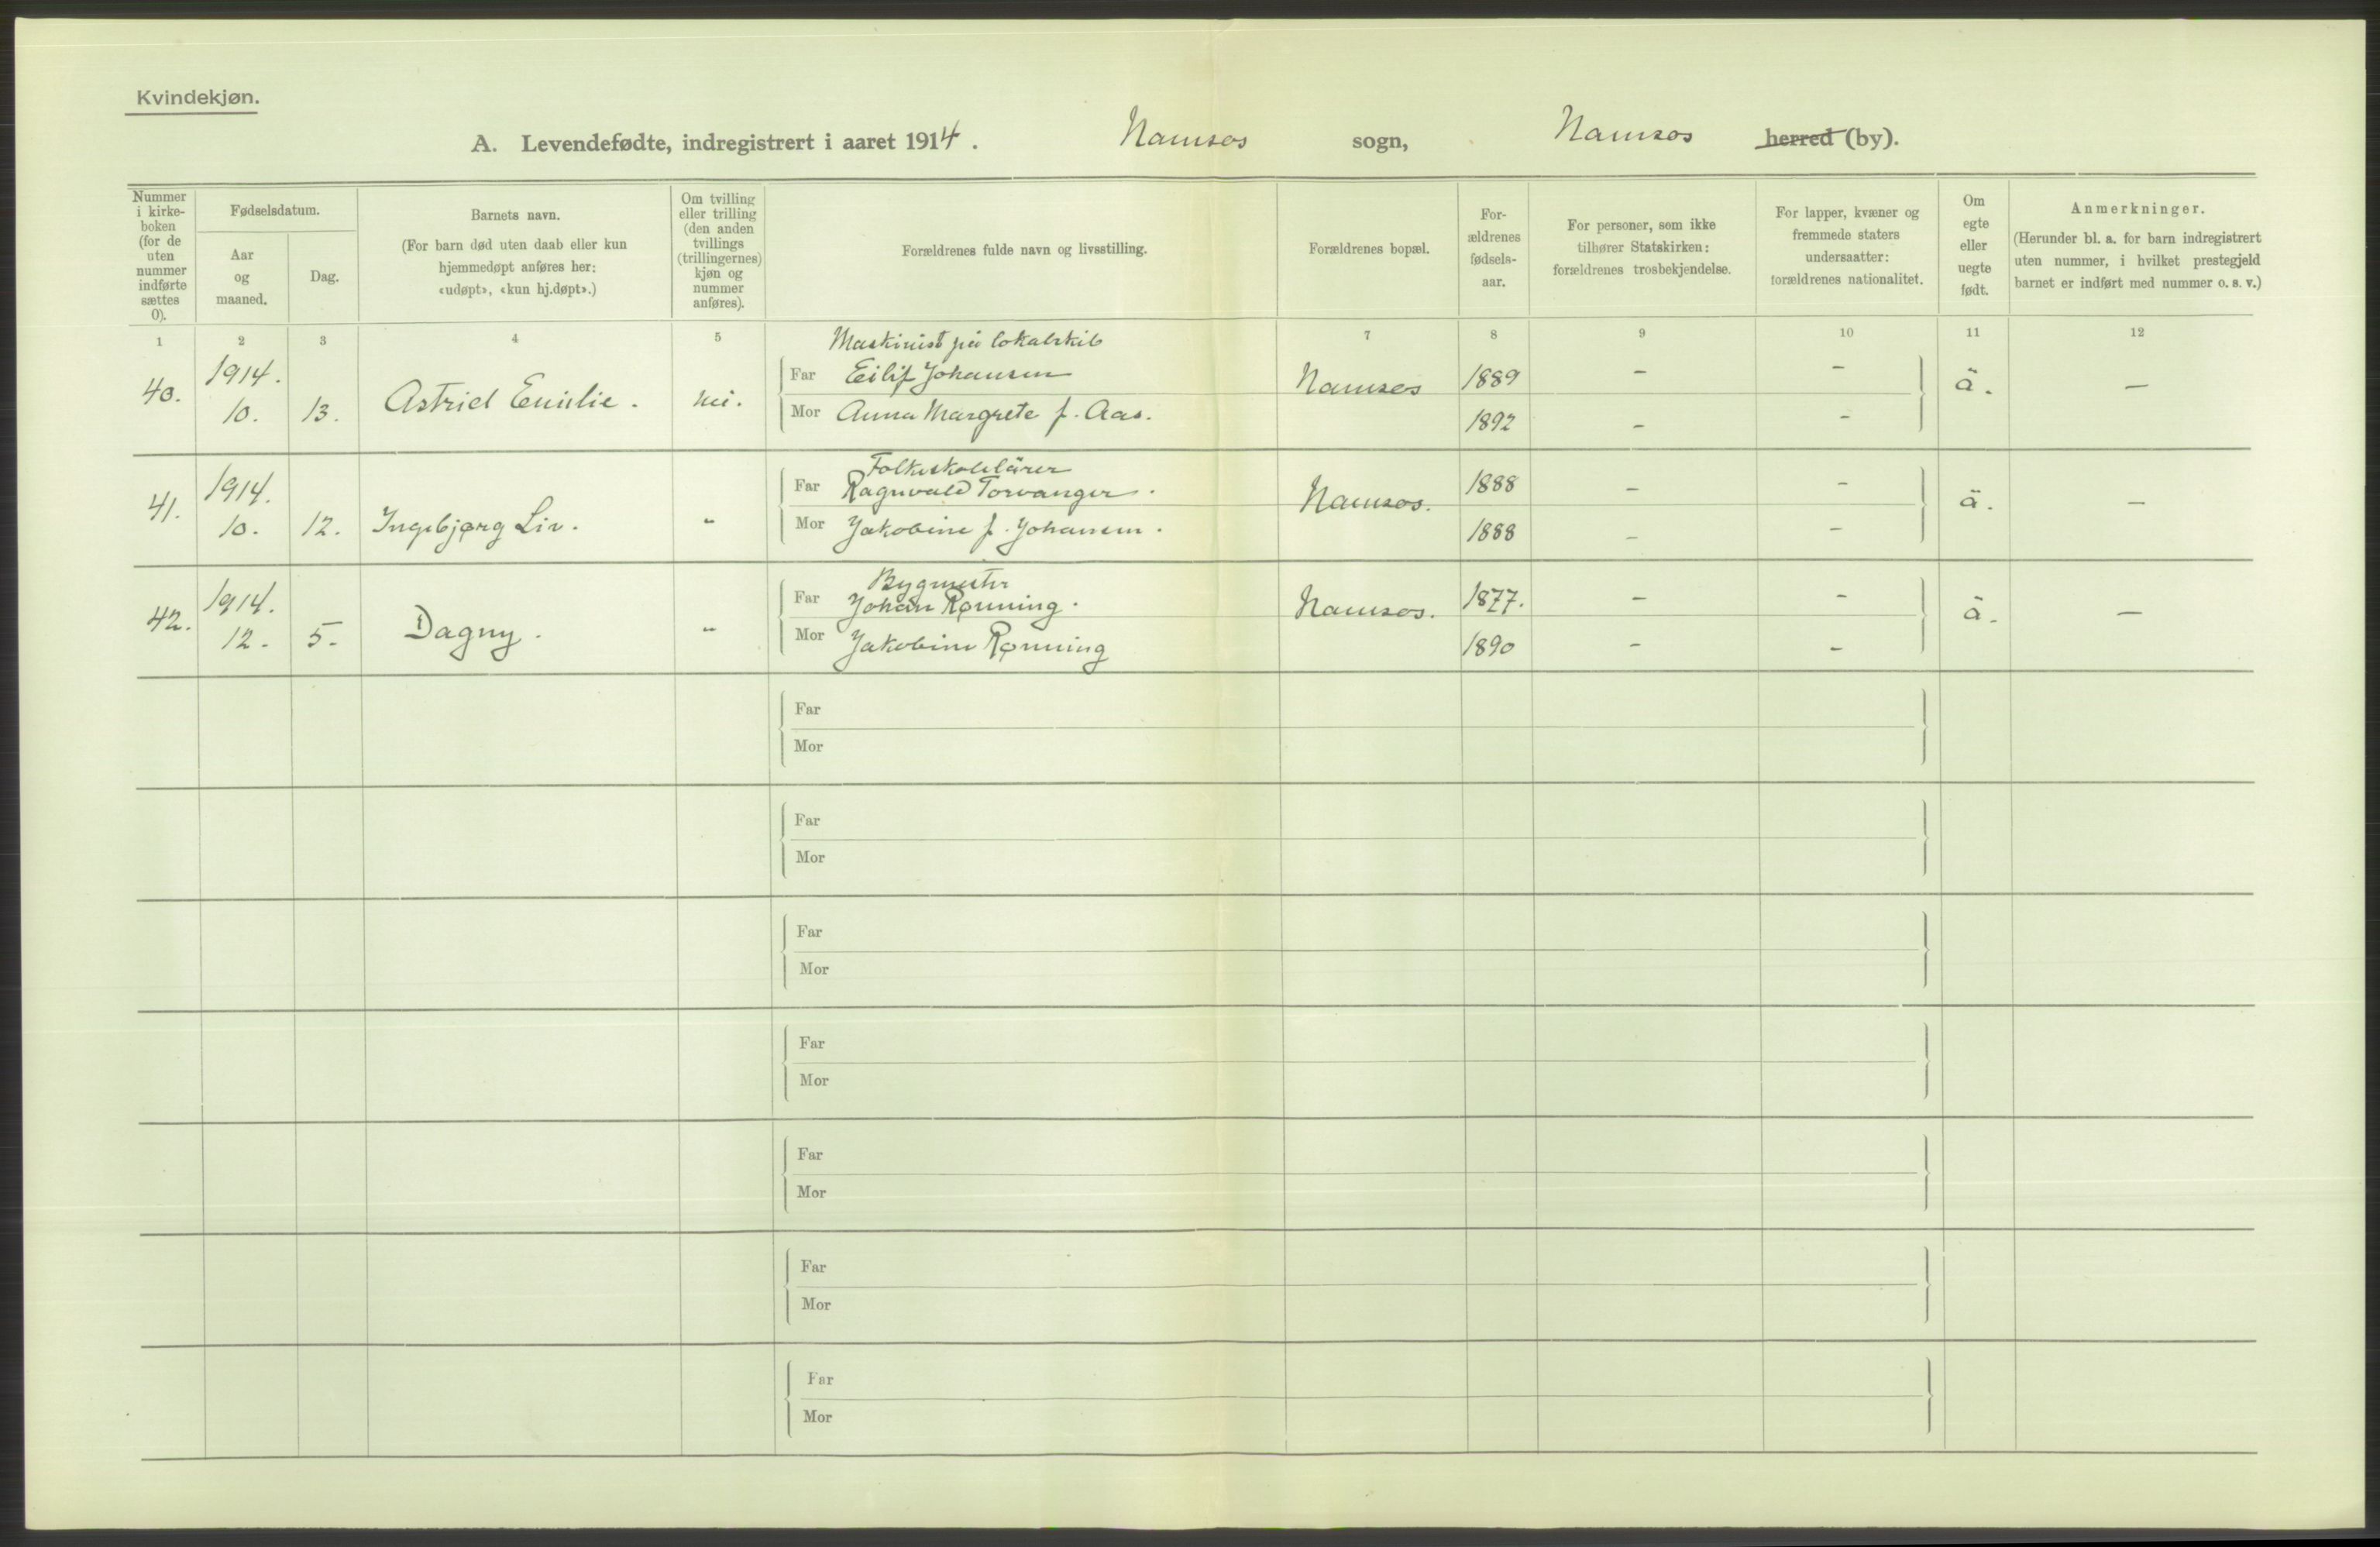 Kvindekjøn.
A. Levendefødte, indregistrert i aaret 1914. Namsos sogn, Namsos herred (by).
Nummer i kirke- boken (for de uten nummer indførte sættes 0).
Fødselsdatum.
Aar og maaned.
Dag.
Barnets navn.
(For barn død uten daab eller kun
hjemmedøpt anføres her:
«udøpt», «kun hj.døpt».)
Om tvilling
eller trilling
(den anden
tvillings
(trillingernes)
kjøn og
nummer
anføres).
Forældrenes fulde navn og livsstilling.
Forældrenes bopæl.
For-
ældrenes
fødsels-
aar.
For personer, som ikke
tilhører Statskirken:
forældrenes trosbekjendelse.
For lapper, kvæner og
fremmede staters
undersaatter:
forældrenes nationalitet.
Om
egte
eller
uegte
født.
Anmerkninger.
(Herunder bl. a. for barn indregistrert
uten nummer, i hvilket prestegjeld
barnet er indført med nummer o. s. v.)
1 2 3 4 5 7 8 9 10 11 12
Maskinist på lokalskib
40. 1914. 10. 13. Astrid Emilie. nei. Far Eilif Johansen Namsos 1889 – – ä. –
Mor Anna Margrete f. Aas. 1892 – –
Folkeskolelärer
41. 1914. 10. 12. Ingebjørg Liv. " Far Ragnvald Torvanger. Namsos. 1888 – – ä. –
Mor Jakobine f. Johansen. 1888 – –
Bygmester
42. 1914. 12. 5. Dagny. " Far Johan Rønning. Namsos. 1877. – – ä. –
Mor Jakobine Rønning 1890 – –
Far
Mor
Far
Mor
Far
Mor
Far
Mor
Far
Mor
Far
Mor
Far
Mor